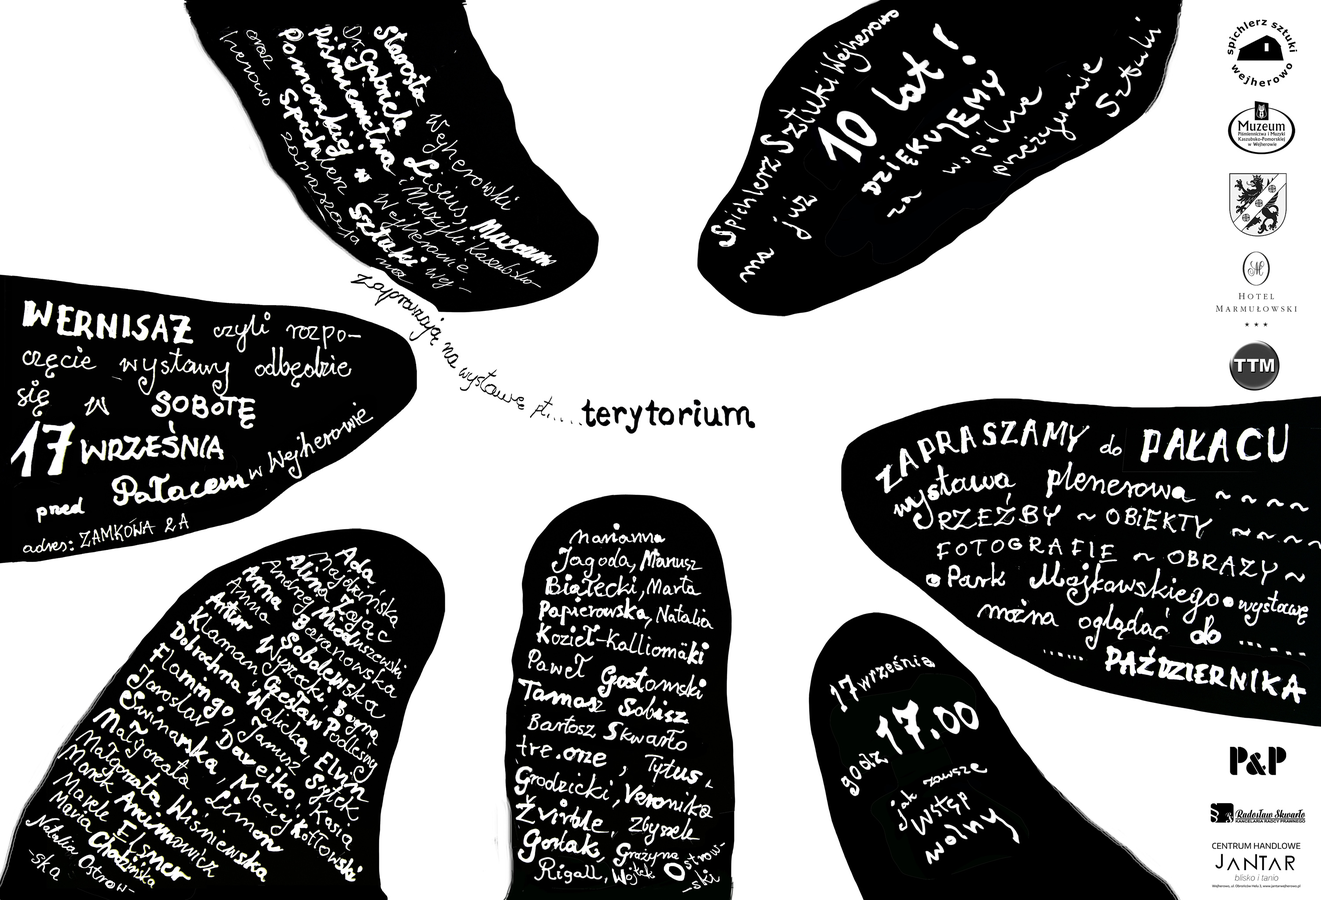 Starosta Wejherowski
Dr. Gabriela Lisius, Muzeum
Piśmiennictwa i Muzyki Kaszubsko-
Pomorskiej w Wejherowie
oraz Spichlerz Sztuki Wej-
herowo
zapraszają na wystawę pt.....terytorium
Spichlerz Sztuki Wejherowo
ma już 10 lat!
DZIĘKUJEMY
za wspólne
przeżywanie
Sztuki
WERNISAŻ czyli rozpo-
częcie wystawy odbędzie
się w SOBOTĘ
17 WRZEŚNIA
pred Pałacem w Wejherowie
adres: ZAMKOWA 2A
ZAPRASZAMY do PAŁACU
wystawa plenerowa ~~~~
RZEŹBY ~ OBiEKTY ~~~~
FOTOGRAFIE ~ OBRAZY ~
Park Majkowskiego wystawę
można oglądać do .....
...... PAŹDZIERNIKA
Ada Majdzińska
Alina Zając
Andrzej Mioduszewski
Anna Baranowska
Anna Sobolewska
Artur Wyszecki, Bogna
Klamann, Czesław Podlesny
Dobrochna Walicka, Elvin
Flamingo, Janusz
Jarosław Daveiko, Kasia
Swinarska, Maciej Kottowski
Małgorzata Limon
Małgorzata Wiśniewska
Marek Ancimowicz
Marek Elsner
Maria
Natalia Ostrow-
-ska
Marianna
Jagoda, Mariusz
Białecki, Marta
Papierowska, Natalia
Kozieł-Kalliomäki
Paweł Gostomski
Tomasz Sobisz
Bartosz Skwarło
tre.one, Tytus
Grodzicki, Veronika
Żvirble, Zbyszek
Gorlak, Grażyna
Rigall, Wojtek Ostrow-
-ski
17 września
godz 17.00
jak zawsze
wstęp
wolny
spichlerz sztuki
wejherowo
Muzeum
Piśmiennictwa i Muzyki
Kaszubsko-Pomorskiej
w Wejherowie
HOTEL
MARMUŁOWSKI
TTM
P&P
Radosław Skwarło
KANCELARIA RADCY PRAWNEGO
CENTRUM HANDLOWE
JANTAR
blisko i tanio